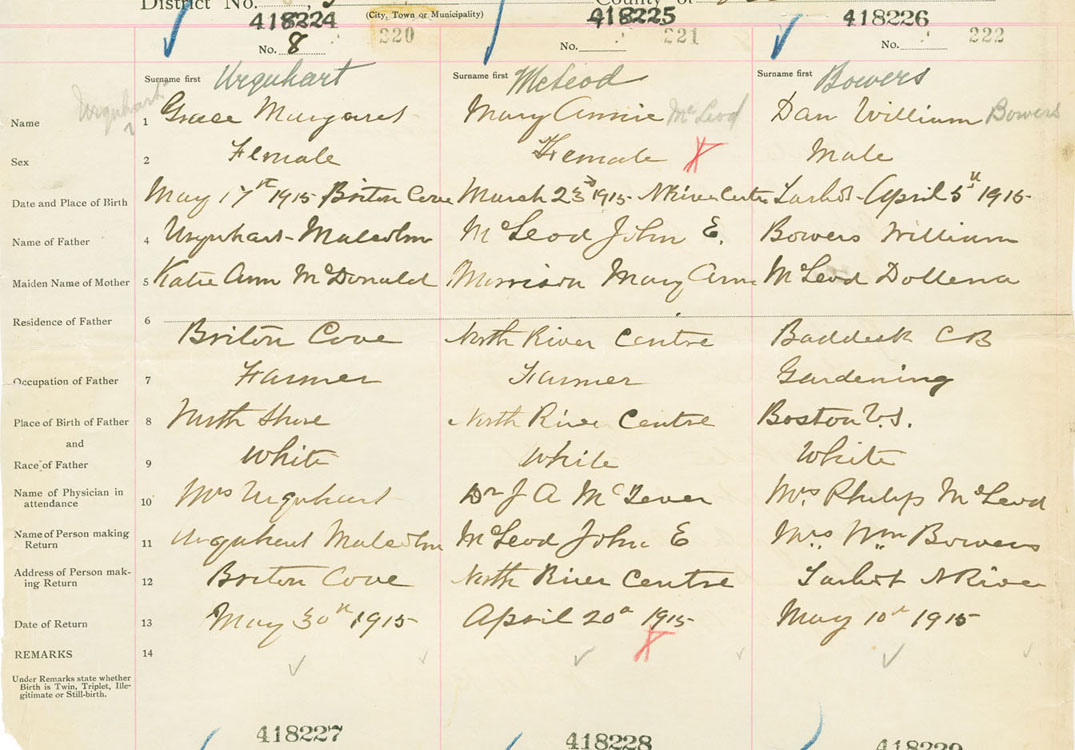 District No.
(City, Town or Municipality)
County of
418224 418225 418226
No. 8 220 No. 221 No. 222
Surname first Urquhart Surname first McLeod Surname first Bowers
Urquhart
Name 1 Grace Margaret Mary Annie McLeod Dan William Bowers
Sex 2 Female Female X Male
Date and Place of Birth May 17th 1915 Briton Cove March 23rd 1915 N River Centre Tarbot April 5th 1915
Name of Father 4 Urquhart Malcolm McLeod John E. Bowers William
Maiden Name of Mother 5 Katie Ann McDonald Morrison Mary Ann McLeod Dollena
Residence of Father 6
Briton Cove North River Centre Baddeck CB
Occupation of Father 7 Farmer Farmer Gardening
Place of Birth of Father 8 North Shore North River Centre Boston U.S.
and
Race of Father 9 White White White
Name of Physician in
attendance 10 Mrs Urquhart Dr J A McIever Mrs. Philip McLeod
Name of Person making
Return 11 Urquhart Malcolm McLeod John E Mrs. Wm Bowers
Address of Person mak-
ing Return 12 Briton Cove North River Centre Tarbot N River
Date of Return 13 May 30th 1915 April 20th 1915 May 10th 1915
REMARKS 14 X
Under Remarks state whether
Birth is Twin, Triplet, Ille-
gitimate or Still-birth.
418227 418228 418229